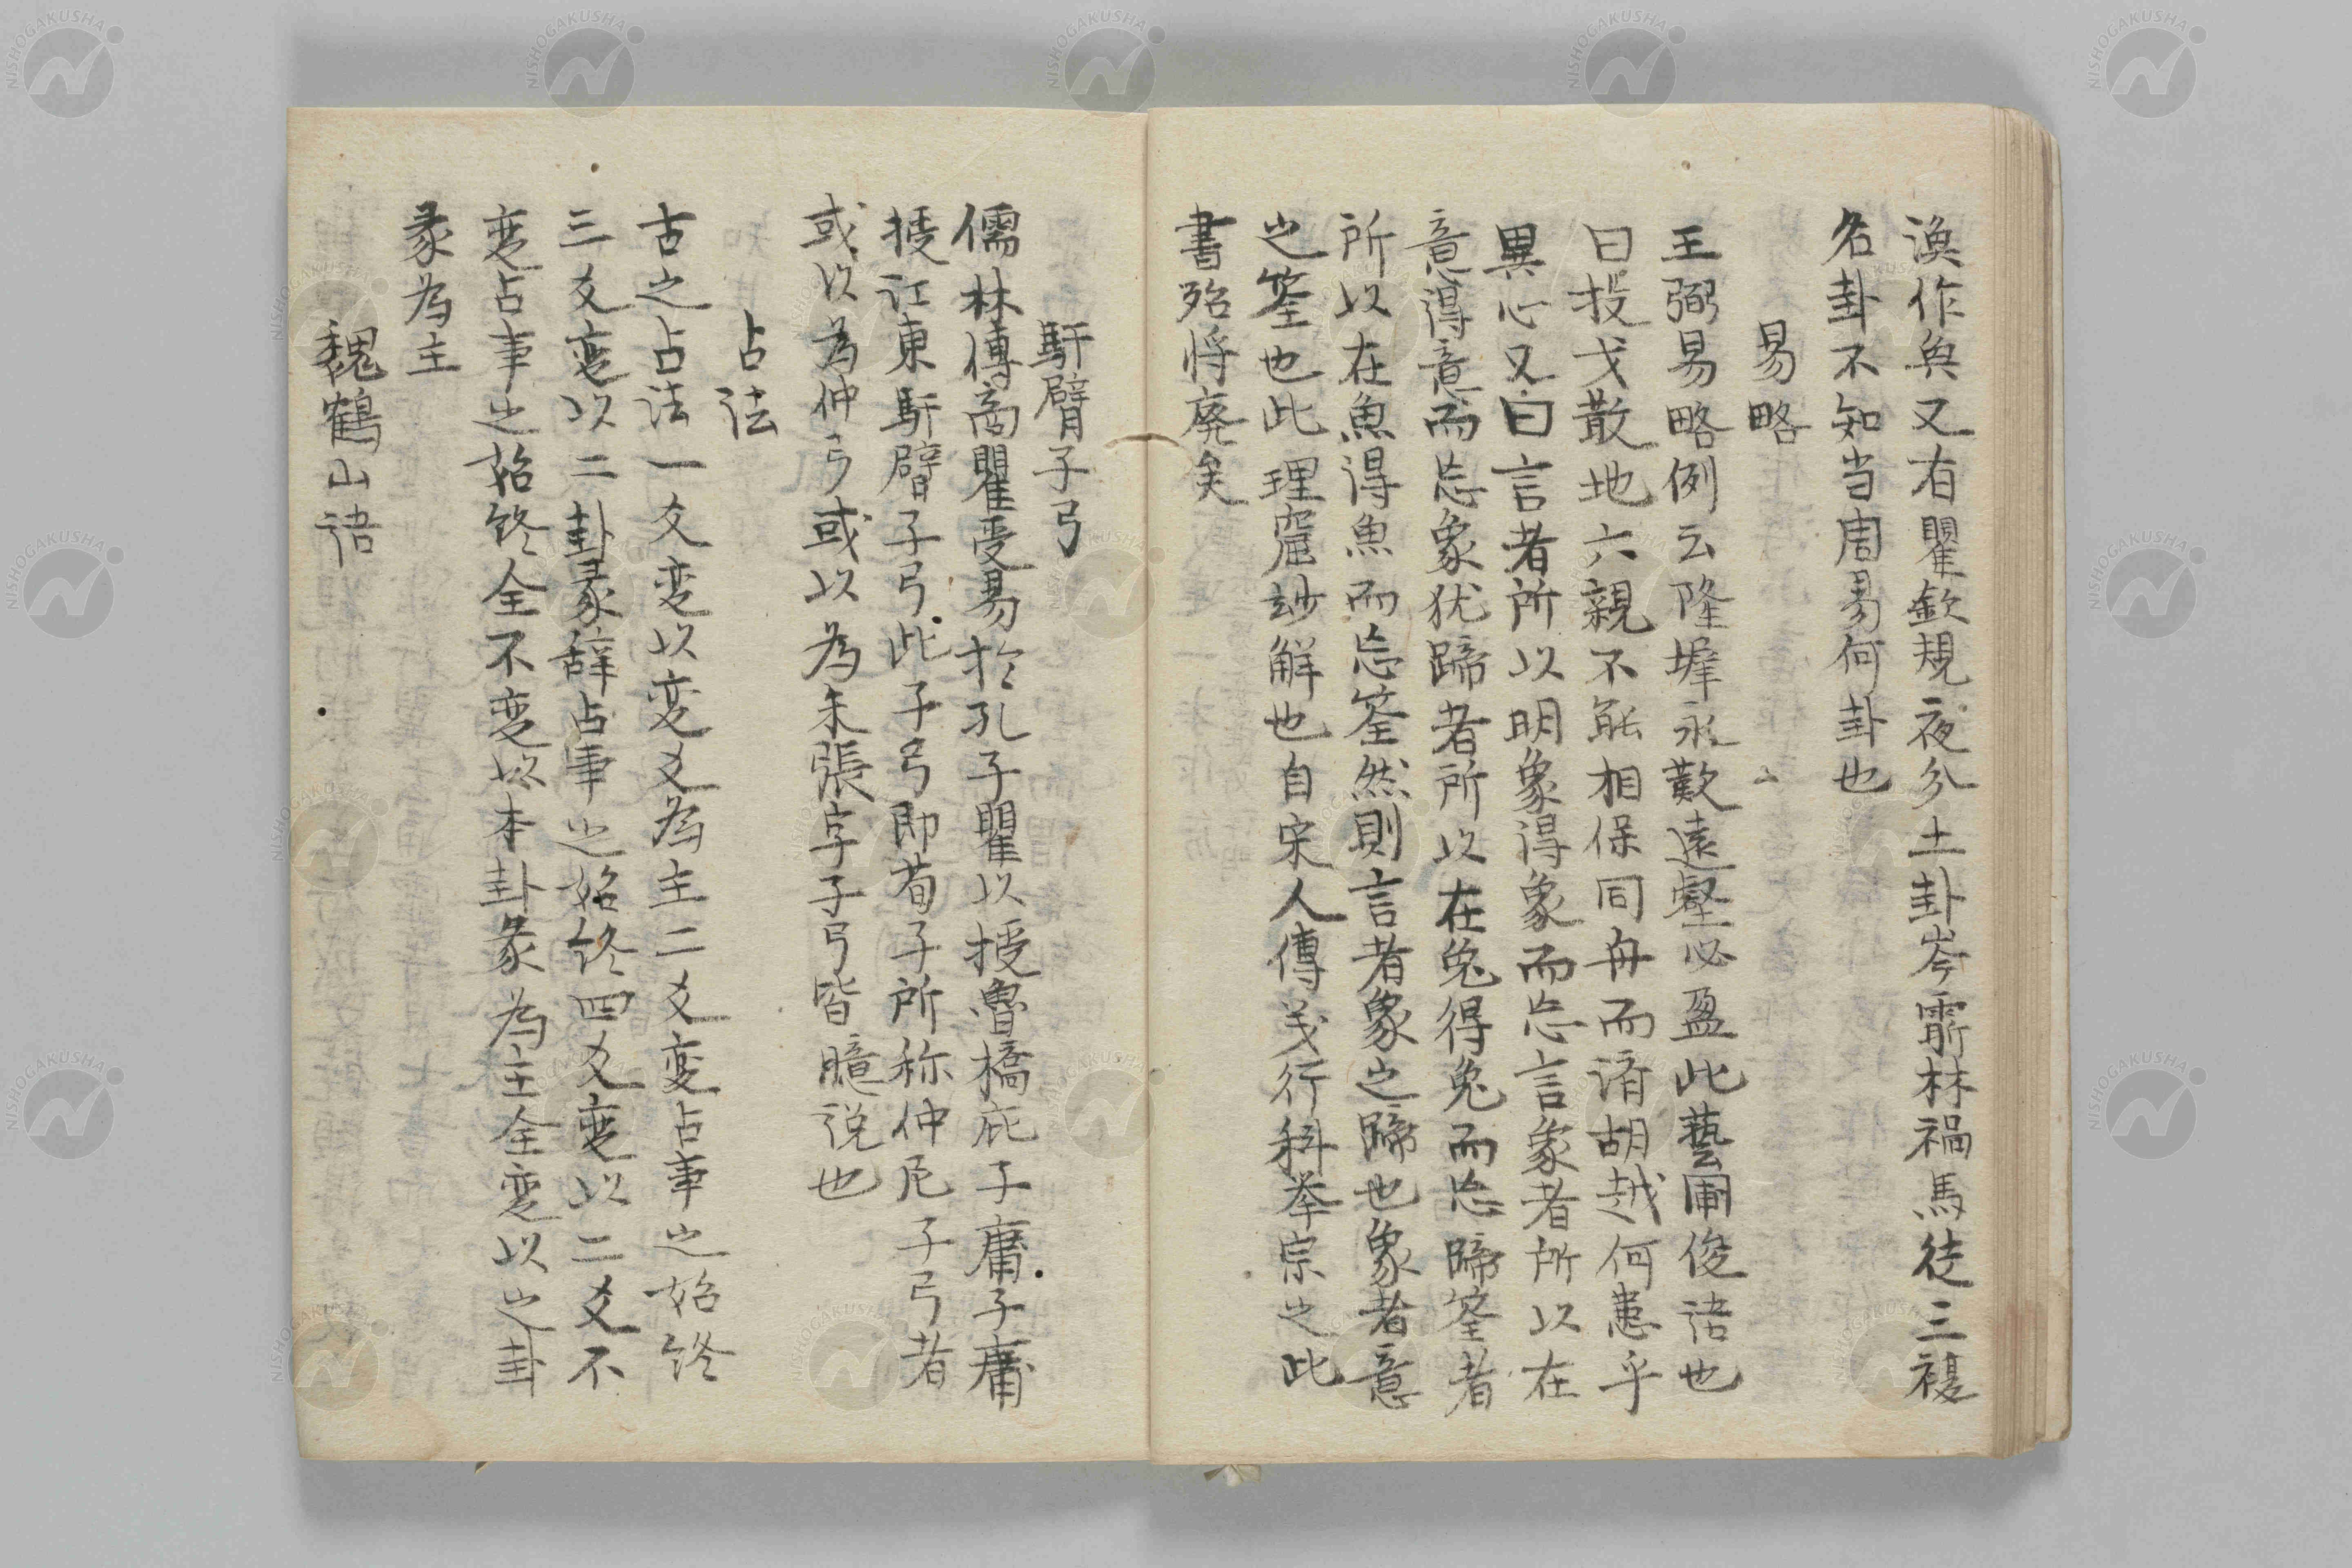 渙作奐又有瞿欽規夜分土卦岑霨林禍馬徒三複
名卦不知当周易何卦也
易略
王弼易略例云隆墀永歎遠壑必盈此藝圃俊語也
曰投戈散地六親不能相保同舟而濟胡越何患乎
異心又曰言者所以明象得象而忘言象者所以在
意得意而忘象犹蹄者所以在兔得兔而忘蹄筌者
所以在魚得魚而忘筌然則言者象之蹄也象者意
之筌也此理窟妙解也自宋人傳义行科挙宗之此
書殆将廃矣
馯臂子弓
儒林傳商瞿受易於孔子瞿以授魯橋庇子庸子庸
授江東馯臂子弓此子弓即荀子所称仲尼子弓者
或以為仲弓或以為朱張字子弓皆臆説也
占法
古之占法一爻変以変爻為主二爻変占事之始終
三爻変以二卦彖辞占事之始終四爻変以二爻不
変占事之始終全不変以本卦彖為主全変以之卦
彖為主
魏鶴山語